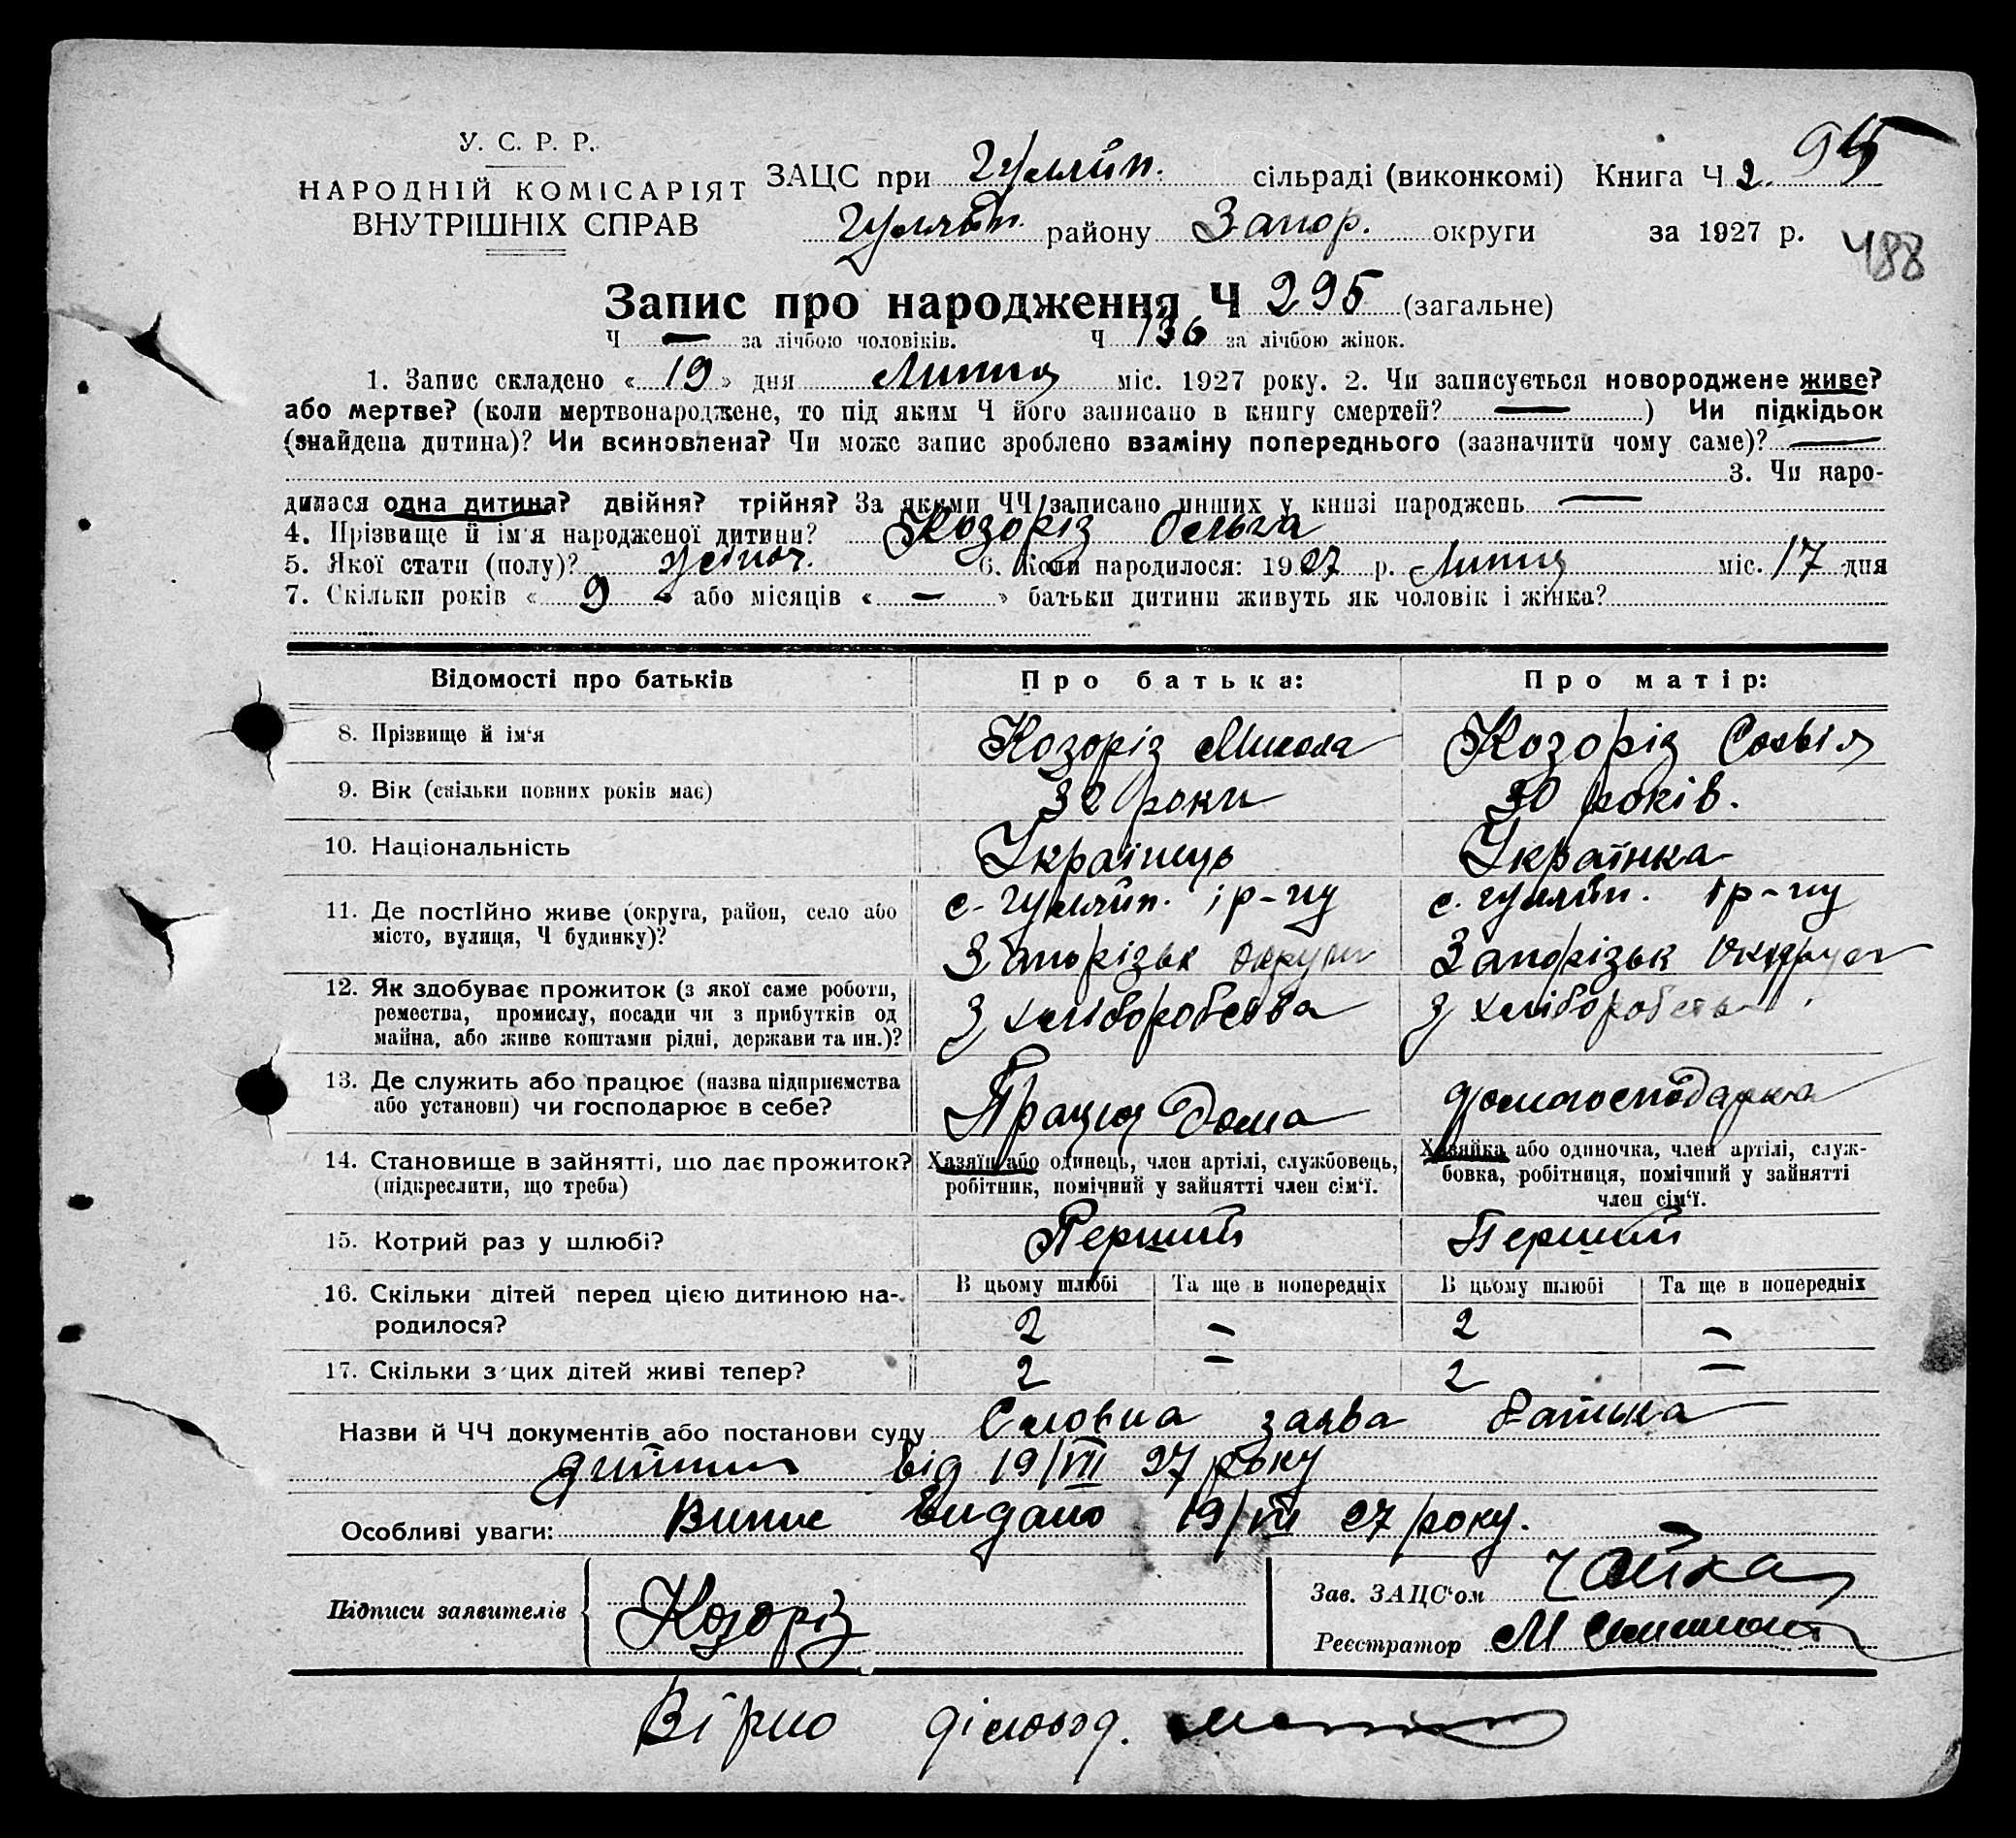 У. С. Р. Р.
НАРОДНІЙ КОМІСАРІЯТ
ВНУТРІШНІХ СПРАВ
ЗАЦС при Гуляйп. сільраді (виконкомі) Книга Ч 2. 95
Гуляйп. району Запор. округи за 1927 р.
488
Запис про народження Ч 295 (загальне)
Ч — за лічбою чоловіків. Ч 136 за лічбою жінок.
1. Запис складено « 19 » дня Липня міс. 1927 року. 2. Чи записується новороджене живе?
або мертве? (коли мертвонароджене, то під яким Ч його записано в книгу смертей? — ) Чи підкідьок
(знайдена дитина)? Чи всиновлена? Чи може запис зроблено взаміну попереднього (зазначити чому саме)? —
3. Чи наро-
дилася одна дитина? двійня? трійня? За якими ЧЧ записано инших у книзі народжень —
4. Прізвище й ім'я народженої дитини? Козоріз Ольга
5. Якої стати (полу)? жіноч. 6. Коли народилося: 1927 р. Липня міс. 17 дня
7. Скільки років « 9 » або місяців « — » батьки дитини живуть як чоловік і жінка?
Відомості про батьків Про батька: Про матір:
8. Прізвище й ім'я Козоріз Микола Козоріз Софія
9. Вік (скільки повних років має) 32 роки 30 років.
10. Національність Українець Українка
11. Де постійно живе (округа, район, село або
місто, вулиця, Ч будинку)?
с. Гуляйп. і р-ну
Запорізьк округи
с. Гуляйп. і р-ну
Запорізьк округи
12. Як здобуває прожиток (з якої саме роботи,
ремества, промислу, посади чи з прибутків од
майна, або живе коштами рідні, держави та ин.)?
З хліборобства
З хліборобства
13. Де служить або працює (назва підприємства
або установи) чи господарює в себе?
Працює дома
домогосподарка
14. Становище в зайнятті, що дає прожиток?
(підкреслити, що треба)
Хазяїн або одинець, член артілі, службовець,
робітник, помічний у зайнятті член сім'ї.
Хазяйка або одиночка, член артілі, служ-
бовка, робітниця, помічний у зайнятті
член сім'ї.
15. Котрий раз у шлюбі? Перший Перший
16. Скільки дітей перед цією дитиною на-
родилося?
В цьому шлюбі Та ще в попередніх В цьому шлюбі Та ще в попередніх
2 — 2 —
17. Скільки з цих дітей живі тепер? 2 — 2 —
Назви й ЧЧ документів або постанови суду Словна заява батька
дитини від 19/VII 27 року
Особливі уваги: Випис видано 19/VII 27 року.
Підписи заявителів Козоріз
Зав. ЗАЦС'ом Чайка
Реєстратор М
Вірно діловод.